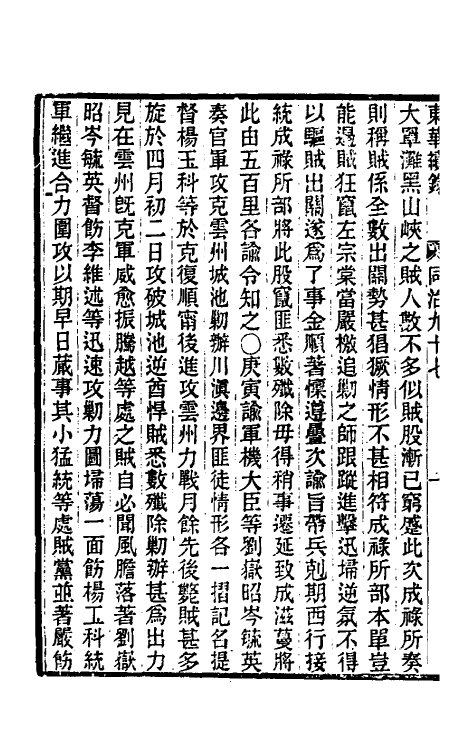 東華續錄 同治九十七
大草灘黑山峽之賊人數不多似賊股漸已窮蹙此次成祿所奏
則稱賊係全數出關勢甚猖獗情形不甚相符成祿所部本單豈
能遏賊狂竄左宗棠當嚴檄追勦之師跟蹤進擊迅埽逆氛不得
以驅賊出關遂爲了事金順著懍遵疊次諭旨帶兵剋期西行接
統成祿所部將此股竄匪悉數殲除毋得稍事遷延致成滋蔓將
此由五百里各諭令知之〇庚寅諭軍機大臣等劉嶽昭岑毓英
奏官軍攻克雲州城池勦辦川滇邊界匪徒情形各一摺記名提
督楊玉科等於克復順甯後進攻雲州力戰月餘先後斃賊甚多
旋於四月初二日攻破城池逆酋悍賊悉數殲除勦辦甚爲出力
見在雲州旣克軍威愈振騰越等處之賊自必聞風膽落著劉嶽
昭岑毓英督飭李維述等迅速攻勦力圖埽蕩一面飭楊玉科統
軍繼進合力圍攻以期早日蕆事其小猛統等處賊黨並著嚴飭